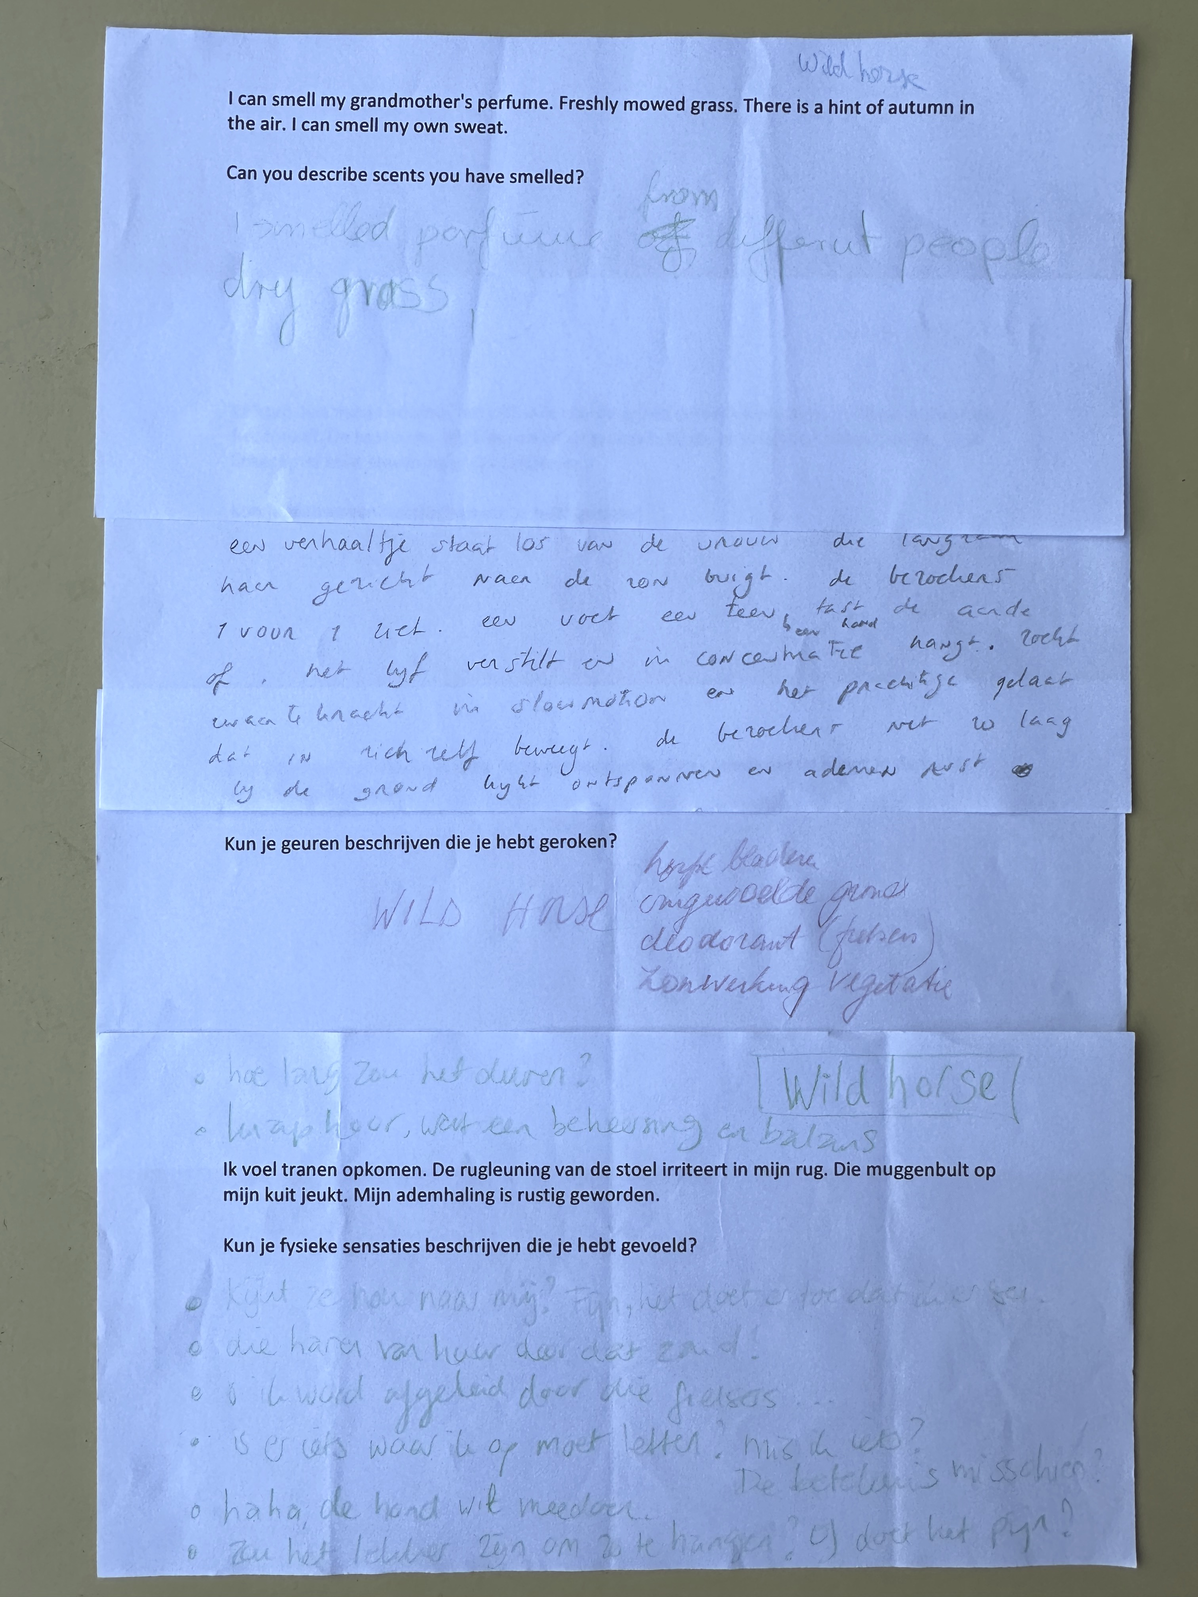 Wild horse
I can smell my grandmother's perfume. Freshly mowed grass. There is a hint of autumn in
the air. I can smell my own sweat.
Can you describe scents you have smelled?
from
I smelled perfume of different people
dry grass,
een verhaaltje staat los van de vrouw die langzaam
haar gezicht naar de zon buigt. de bezoekers
1 voor 1 ziet. een voet een teen, tast de aarde
een hand
of. het lyf verstilt en in concentratie hangt. zocht
in slowmotion en het prachtige gelaat
dat in zich zelf beweegt. de bezoeker net zo laag
by de grond lykt ontspannen en ademen rust
Kun je geuren beschrijven die je hebt geroken?
WILD HORSE
bladeren
omgewoelde grond
deodorant (fietsers)
zonwerking vegetatie
hoe lang zou het duren?
Wild horse
knap hoor, wat een beheersing en balans
Ik voel tranen opkomen. De rugleuning van de stoel irriteert in mijn rug. Die muggenbult op
mijn kuit jeukt. Mijn ademhaling is rustig geworden.
Kun je fysieke sensaties beschrijven die je hebt gevoeld?
Kijkt ze nou naar mij? Fijn, het doet er toe dat ik er ben.
die haren van haar door dat zand!
ik word afgeleid door die fietsers...
is er iets waar ik op moet letten? mis ik iets?
De betekenis misschien?
haha, de hond wil meedoen.
zou het lekker zijn om zo te hangen? of doet het pijn?